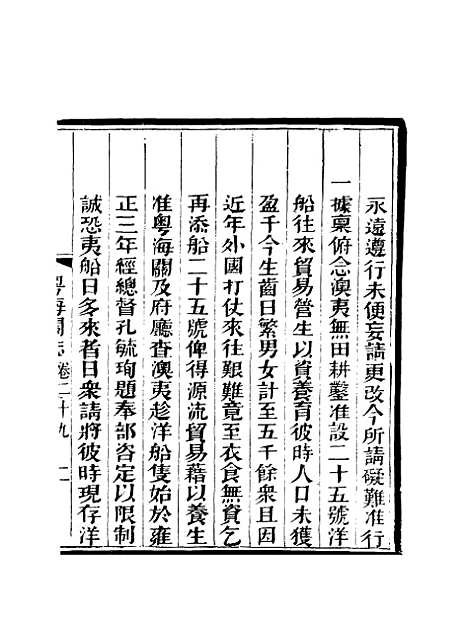 永遠遵行未便妄請更改今所請礙難准行
一據稟俯念澳夷無田耕鑿准設二十五號洋
船往來貿易營生以資養育彼時人口未獲
盈千今生齒日繁男女計至五千餘衆且因
近年外國打仗來往艱難竟至衣食無資乞
再添船二十五號俾得源流貿易藉以養生
准粵海關及府廳查澳夷趁洋船隻始於雍
正三年經總督孔毓珣題奉部咨定以限制
誠恐夷船日多來者日衆請將彼時現存洋
粵海關志卷二十九 二